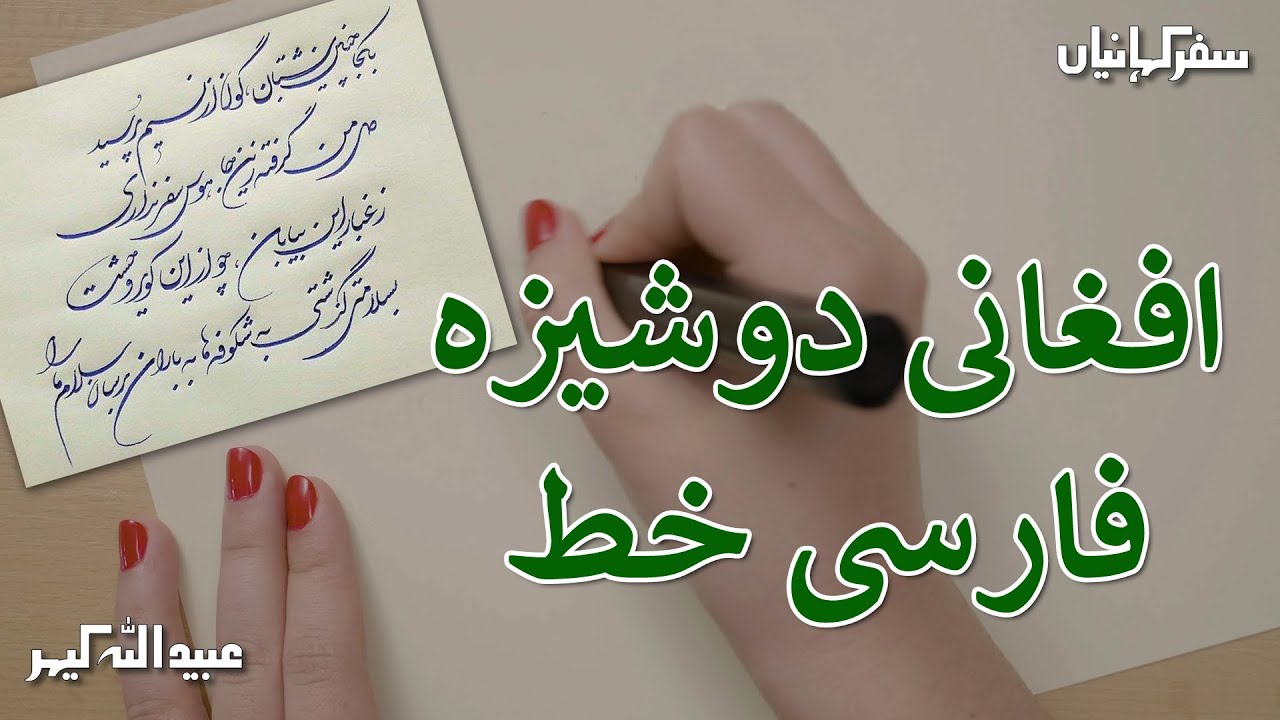 سفر کہانیاں
بکجا چنین شتابان، گون از نسیم پرسید
دل من گرفته زین جا، هوس سفر نداری
ز غبار این بیابان، چو از این کویر وحشت
بسلامتی گذشتی به شکوفه ها به باران برسان سلام ما را
افغانی دوشیزہ
فارسی خط
عبید اللہ کیہر